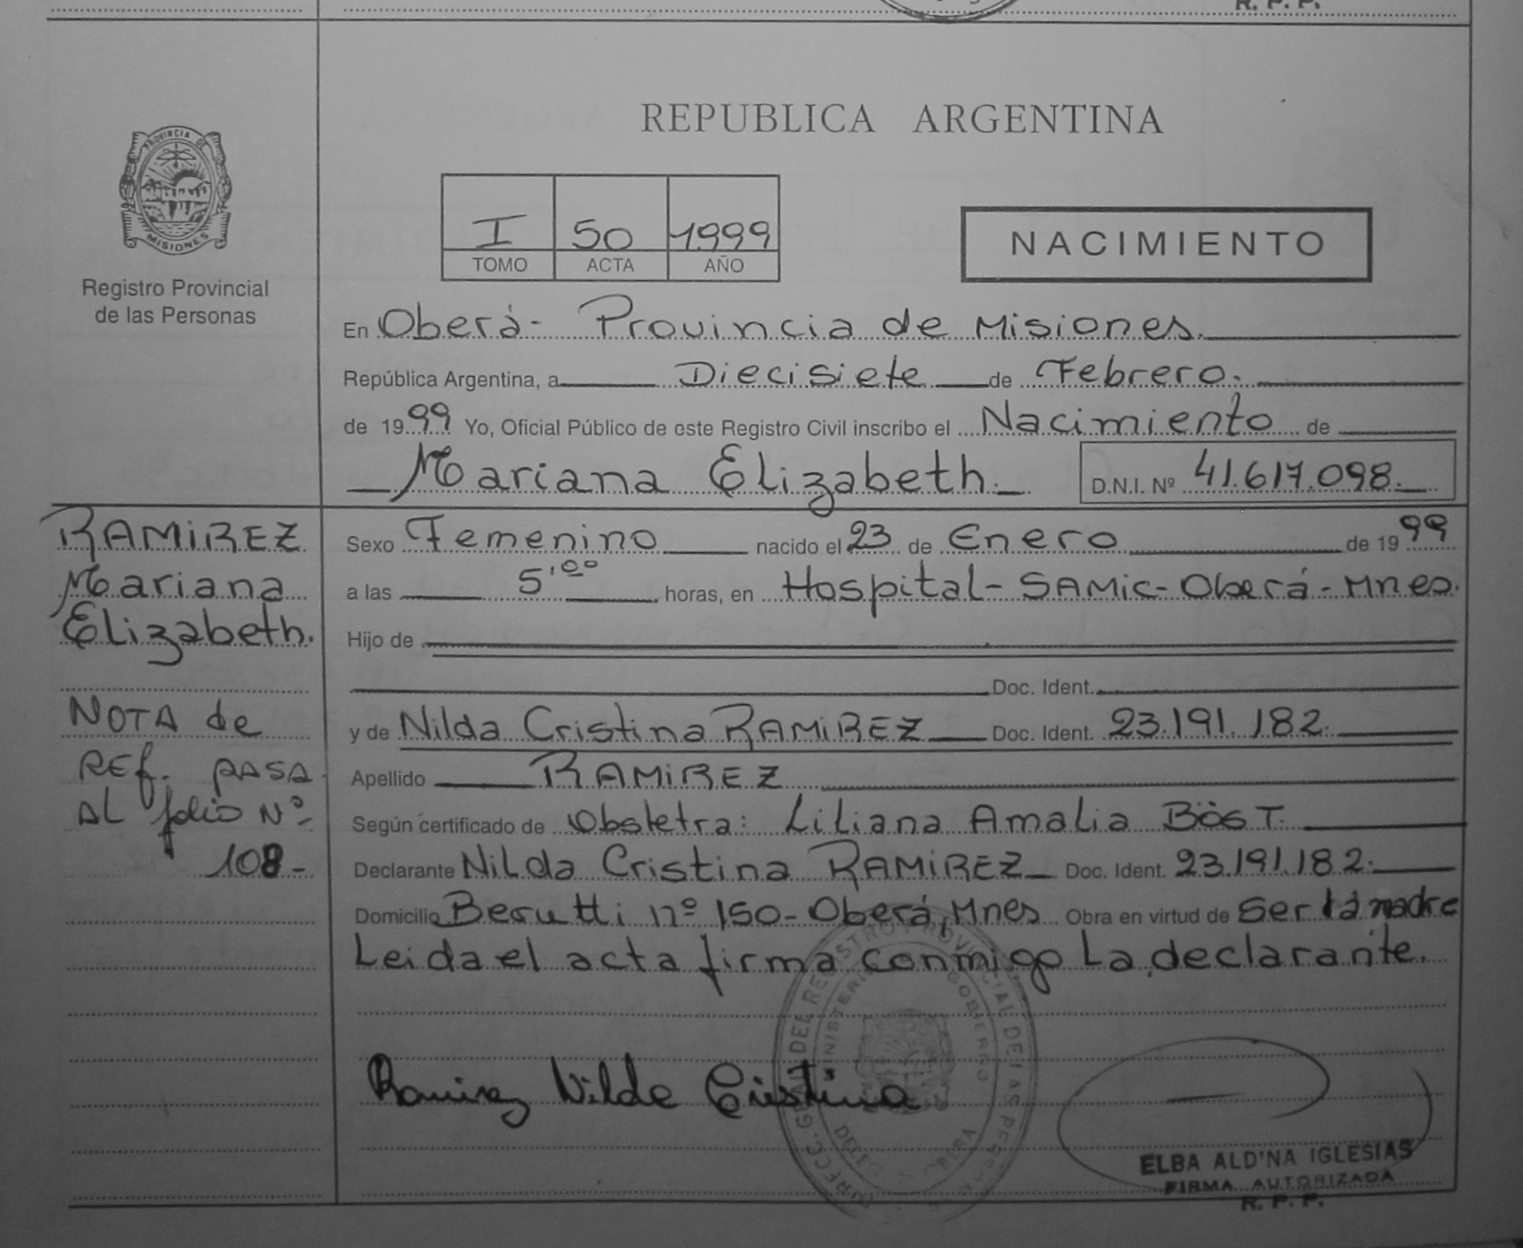 R. P. P.
REPUBLICA ARGENTINA
PROVINCIA DE
MISIONES
Registro Provincial
de las Personas
I 50 1999
TOMO ACTA AÑO
NACIMIENTO
En Oberá- Provincia de Misiones.
República Argentina, a Diecisiete de Febrero.
de 1999 Yo, Oficial Público de este Registro Civil inscribo el Nacimiento de
Mariana Elizabeth. D.N.I. Nº 41.617.098.
RAMIREZ
Mariana
Elizabeth.
NOTA de
REf. PASA
AL folio Nº
108-
Sexo Femenino nacido el 23 de Enero de 1999
a las 5'00 horas, en Hospital-SAMic-Oberá-Mnes.
Hijo de
Doc. Ident.
y de Nilda Cristina RAMIREZ Doc. Ident. 23.191.182.
Apellido RAMIREZ
Según certificado de Obstetra: Liliana Amalia BÖST.
Declarante Nilda Cristina RAMIREZ Doc. Ident. 23.191.182.
Domicilio Berutti nº 150-Oberá, Mnes Obra en virtud de Ser la madre
Leida el acta firma conmigo La declarante.
Ramirez Nilda Cristina
ELBA ALD'NA IGLESIAS
FIRMA AUTORIZADA
R. P. P.